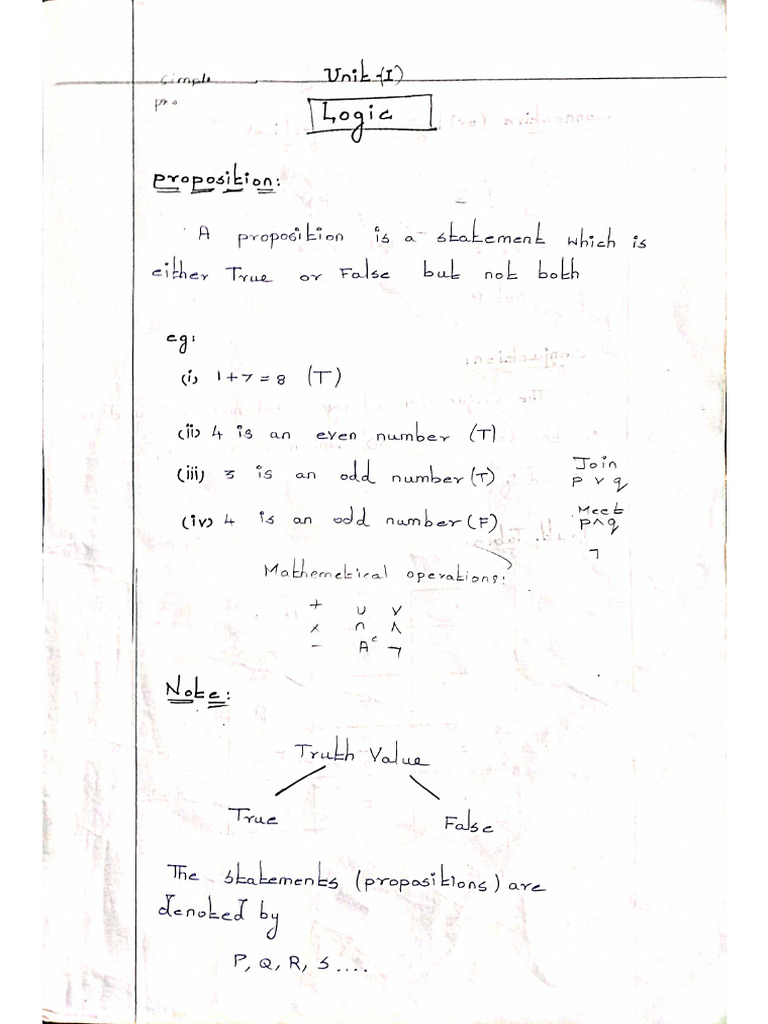 Unit-(I)
Simple
pro
Logic
Proposition:
A proposition is a statement which is
either True or False but not both
eg:
(i) 1+7=8 (T)
(ii) 4 is an even number (T)
(iii) 3 is an odd number (T)
Join
p ∨ q
(iv) 4 is an odd number (F)
Meet
p ∧ q
¬
Mathemetical operations:
+ ∪ ∨
× ∩ ∧
- Aᶜ ¬
Note:
Truth Value
True False
The statements (propositions) are
denoted by
P, Q, R, S....